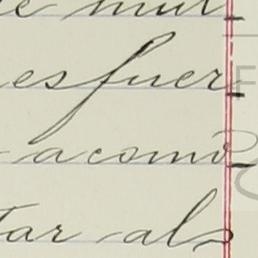 e mul-
esfuer-
- acomo-
tar als